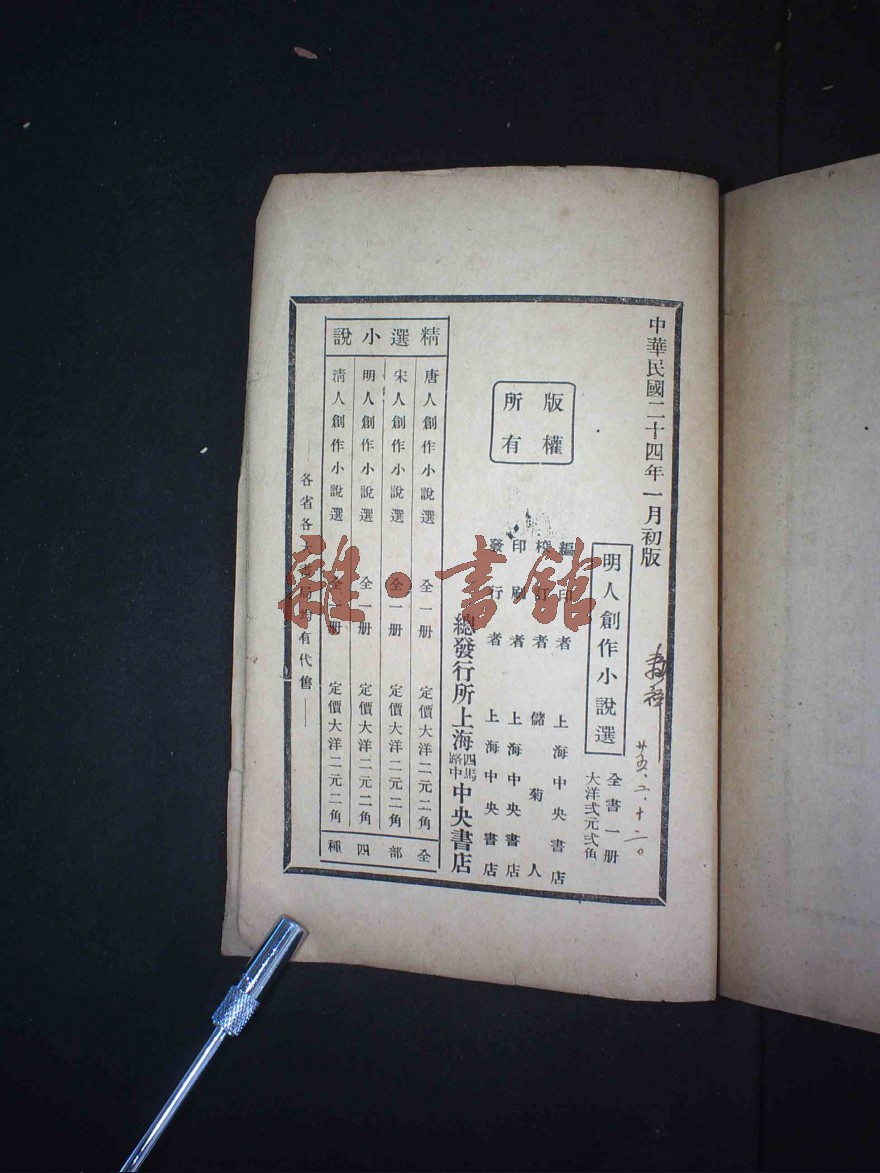 中華民國二十四年一月初版
明人創作小說選
全書一册
大洋弍元弍角
廿五、二、十二。
版權
所有
編印者 上海中央書店
校訂者 儲菊人
印刷者 上海中央書店
發行者 上海中央書店
總發行所上海四馬路中中央書店
精選小說
唐人創作小說選 全一册 定價大洋二元二角
宋人創作小說選 全一册 定價大洋二元二角
明人創作小說選 全一册 定價大洋二元二角
清人創作小說選 全一册 定價大洋二元二角
全部四種
各省各大書局均有代售
雜·書館